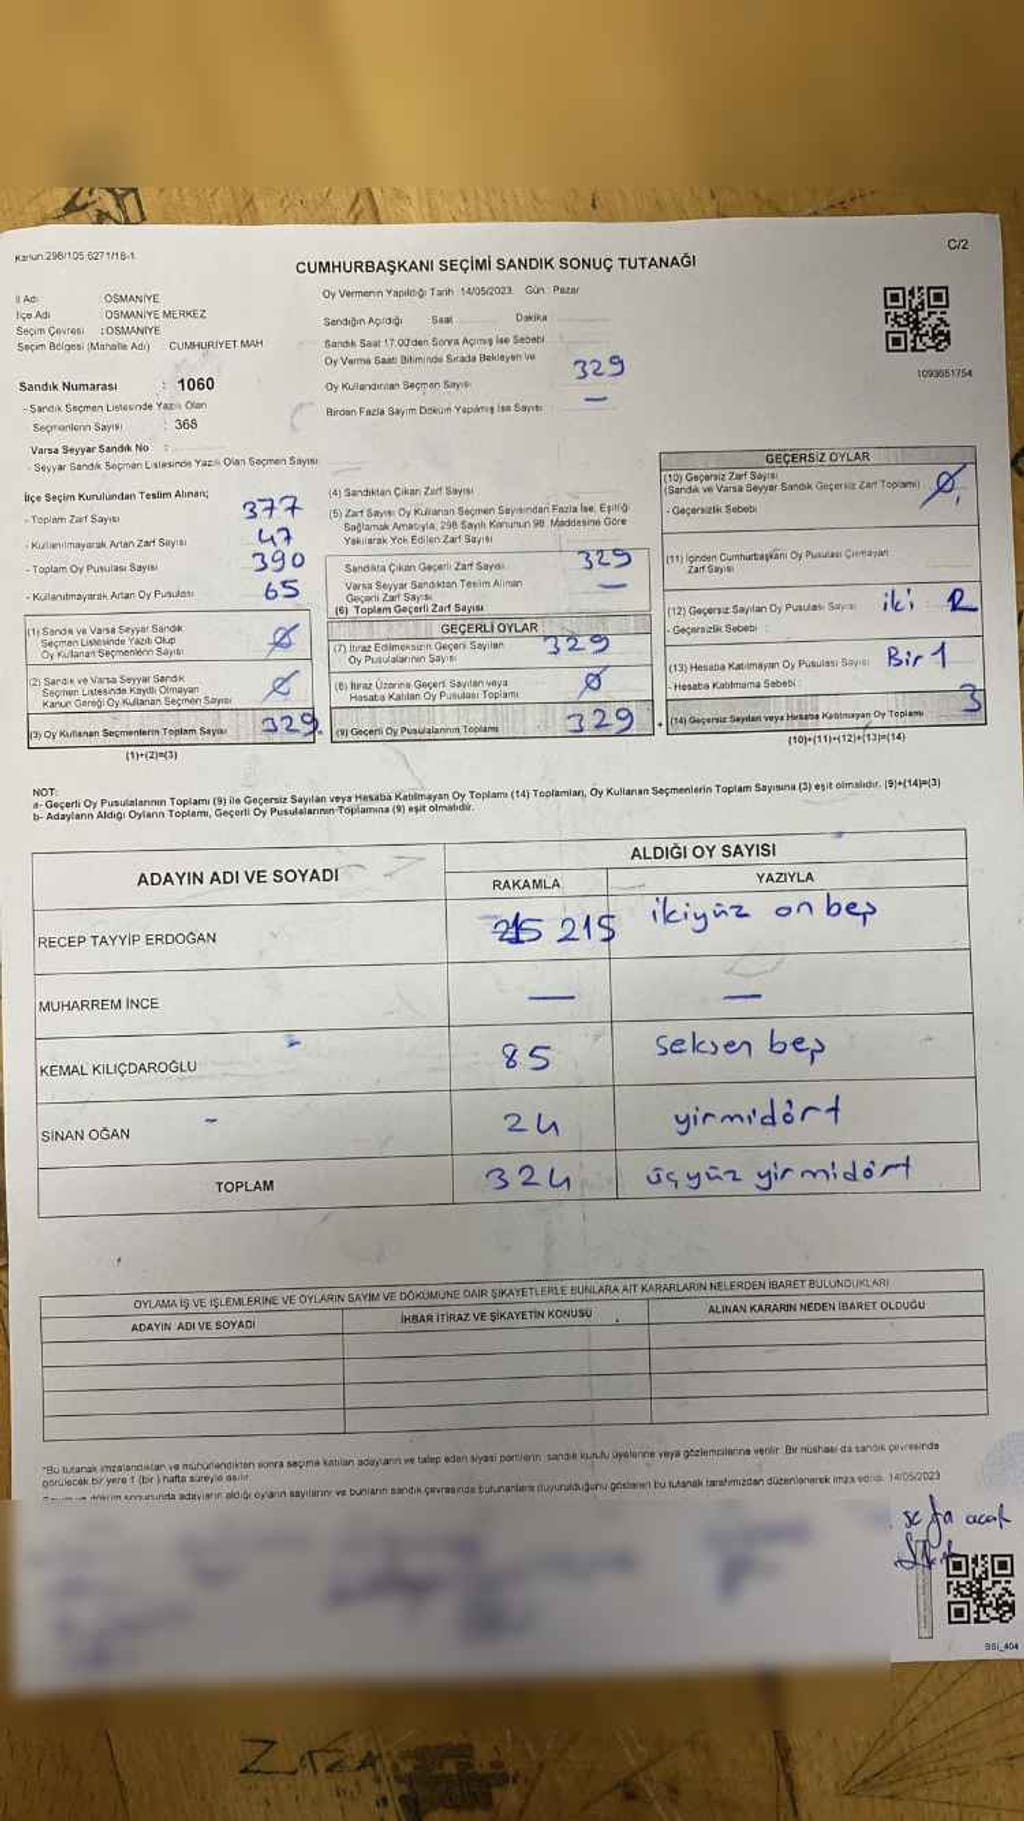 Kanun:298/105 6271/18-1
C/2
CUMHURBAŞKANI SEÇİMİ SANDIK SONUÇ TUTANAĞI
İl Adı : OSMANİYE
İlçe Adı : OSMANİYE MERKEZ
Seçim Çevresi : OSMANİYE
Seçim Bölgesi (Mahalle Adı) : CUMHURİYET MAH
Sandık Numarası : 1060
- Sandık Seçmen Listesinde Yazılı Olan
Seçmenlerin Sayısı : 368
Varsa Seyyar Sandık No :
- Seyyar Sandık Seçmen Listesinde Yazılı Olan Seçmen Sayısı
Oy Vermenin Yapıldığı Tarih :14/05/2023 Gün : Pazar
Sandığın Açıldığı Saat Dakika
Sandık Saat 17.00'den Sonra Açılmış İse Sebebi
Oy Verme Saati Bitiminde Sırada Bekleyen ve
Oy Kullandırılan Seçmen Sayısı 329
Birden Fazla Sayım Döküm Yapılmış İse Sayısı —
1093651754
İlçe Seçim Kurulundan Teslim Alınan;
- Toplam Zarf Sayısı 377
- Kullanılmayarak Artan Zarf Sayısı 47
- Toplam Oy Pusulası Sayısı 390
- Kullanılmayarak Artan Oy Pusulası 65
(1) Sandık ve Varsa Seyyar Sandık
Seçmen Listesinde Yazılı Olup
Oy Kullanan Seçmenlerin Sayısı Ø
(2) Sandık ve Varsa Seyyar Sandık
Seçmen Listesinde Kayıtlı Olmayan
Kanun Gereği Oy Kullanan Seçmen Sayısı Ø
(3) Oy Kullanan Seçmenlerin Toplam Sayısı 329
(1)+(2)=(3)
(4) Sandıktan Çıkan Zarf Sayısı
(5) Zarf Sayısı Oy Kullanan Seçmen Sayısından Fazla İse, Eşitliği
Sağlamak Amacıyla, 298 Sayılı Kanunun 98. Maddesine Göre
Yakılarak Yok Edilen Zarf Sayısı
Sandıkta Çıkan Geçerli Zarf Sayısı 329
Varsa Seyyar Sandıktan Teslim Alınan
Geçerli Zarf Sayısı —
(6) Toplam Geçerli Zarf Sayısı
GEÇERLİ OYLAR
(7) İtiraz Edilmeksizin Geçerli Sayılan
Oy Pusulalarının Sayısı 329
(8) İtiraz Üzerine Geçerli Sayılan veya
Hesaba Katılan Oy Pusulası Toplamı Ø
(9) Geçerli Oy Pusulalarının Toplamı 329
GEÇERSİZ OYLAR
(10) Geçersiz Zarf Sayısı
(Sandık ve Varsa Seyyar Sandık Geçersiz Zarf Toplamı) Ø
- Geçersizlik Sebebi
(11) İçinden Cumhurbaşkanı Oy Pusulası Çıkmayan
Zarf Sayısı
(12) Geçersiz Sayılan Oy Pusulası Sayısı iki 2
- Geçersizlik Sebebi :
(13) Hesaba Katılmayan Oy Pusulası Sayısı Bir 1
- Hesaba Katılmama Sebebi :
(14) Geçersiz Sayılan veya Hesaba Katılmayan Oy Toplamı 3
(10)+(11)+(12)+(13)=(14)
NOT:
a- Geçerli Oy Pusulalarının Toplamı (9) ile Geçersiz Sayılan veya Hesaba Katılmayan Oy Toplamı (14) Toplamları, Oy Kullanan Seçmenlerin Toplam Sayısına (3) eşit olmalıdır. (9)+(14)=(3)
b- Adayların Aldığı Oyların Toplamı, Geçerli Oy Pusulalarının Toplamına (9) eşit olmalıdır.
ADAYIN ADI VE SOYADI
ALDIĞI OY SAYISI
RAKAMLA YAZIYLA
RECEP TAYYİP ERDOĞAN 215 215 ikiyüz on beş
MUHARREM İNCE — —
KEMAL KILIÇDAROĞLU 85 seksen beş
SİNAN OĞAN 24 yirmidört
TOPLAM 324 üçyüz yirmidört
OYLAMA İŞ VE İŞLEMLERİNE VE OYLARIN SAYIM VE DÖKÜMÜNE DAİR ŞİKAYETLERLE BUNLARA AİT KARARLARIN NELERDEN İBARET BULUNDUKLARI
ADAYIN ADI VE SOYADI İHBAR İTİRAZ VE ŞİKAYETİN KONUSU ALINAN KARARIN NEDEN İBARET OLDUĞU
"Bu tutanak imzalandıktan ve mühürlendikten sonra seçime katılan adayların ve talep eden siyasi partilerin sandık kurulu üyelerine veya gözlemcilerine verilir. Bir nüshası da sandık çevresinde
görülecek bir yere 1 (bir) hafta süreyle asılır.
Sayım ve döküm sonucunda adayların aldığı oyların sayılarını ve bunların sandık çevresinde bulunanlara duyurulduğunu gösteren bu tutanak tarafımızdan düzenlenerek imza edildi. 14/05/2023
sefa acar
BSI_404